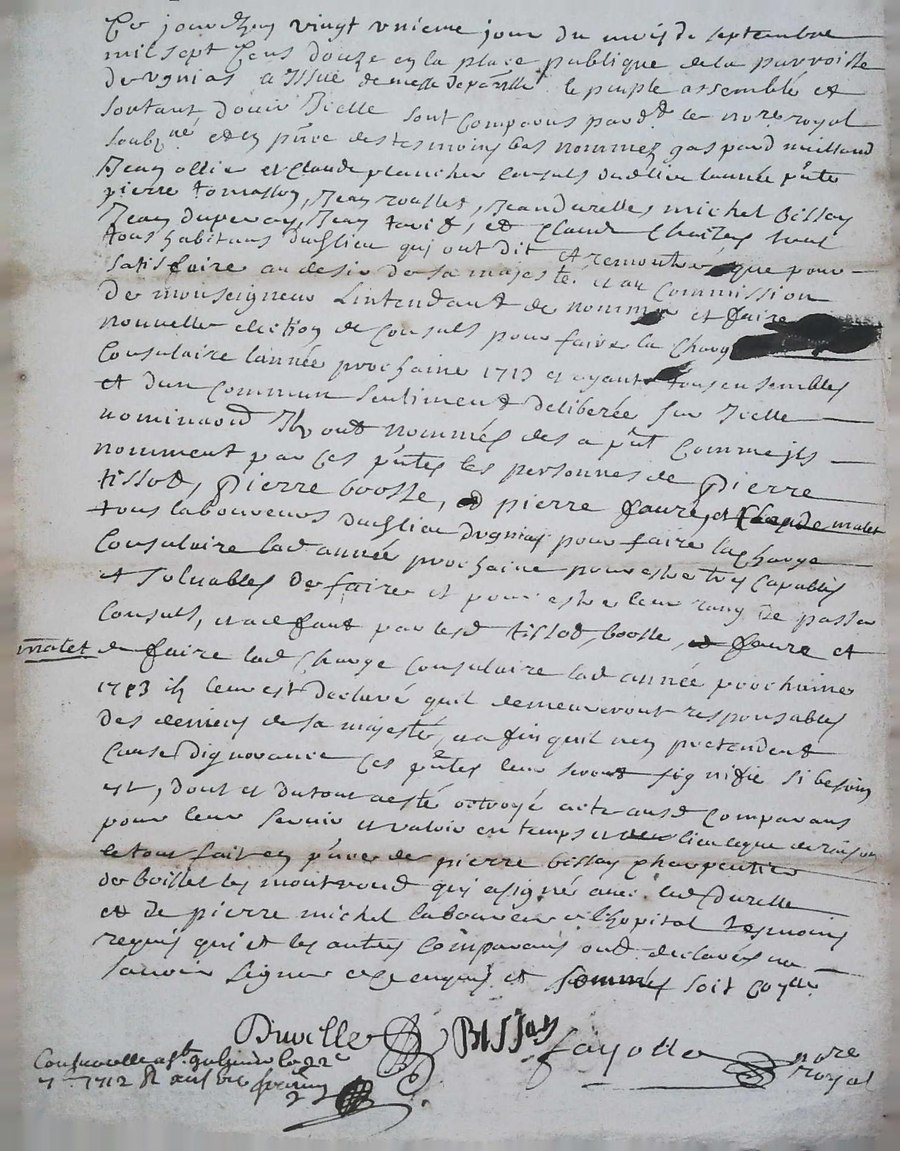 Ce jourdhuy vingt unieme jour du mois de septembre
mil sept Cens douze en la place publique de la parroisse
dugnias a Issuë de messe de parr.lle le peuple assemblé et
sortant douir Icelle sont Comparus pard.t le no.re royal
soubz.né et en p.nce des tesmoins bas nommez gaspard
Jean ollie et Claude plancher Consuls dud lieu lannée p.nte
pierre tomasson, Jean rouller, Jean durelle, michel Bissay
Jean duperay, Jean et Claude tous
tous habitans dud lieu qui ont dit et remontré que pour
satisfaire au desir de sa majesté et au Commission
de monseigneur Lintendant de nommer et faire
nouvelle election de Consuls pour faire la Charge
Consulaire lannée prochaine 1713 et ayant tous ensembles
et dun Commun sentiment deliberée sur Icelle
nominaon Ils ont nommés des a p.nt Comme ils
nomment par Ces p.ntes les personnes de Pierre
tissot, Pierre boosse, et pierre faure, et Claude malet
tous laboureurs dud lieu dugnias pour faire la Charge
Consulaire lad année prochaine pour estre tres Capables
et solvables de faire et pour estre leur rang de passer
Consuls, et a deffaut par lesd tissot, boosse, et faure et
malet de faire lad Charge Consulaire lad année prochaine
1713 il leur est declaré quil demeureront responsables
des deniers de sa majesté, et a fin quil nen pretendent
Cause dignorance Ces p.ntes leur seront signifie si besoin
est, dont et du tout a esté octroyé acte ausd Comparans
pour leur servir et valoir en temps et lieu que de raison
le tout fait en p.nce de pierre bissay Charpentier
de boisset les montrond qui a signé avec led durelle
et de pierre michel laboureur a lhopital tesmoins
requis qui et les autres Comparans ont declarés ne
scavoir signer de ce enquis et sommés soit Con.llé
Durelle BISSay
fayolle no.re
royal
1712